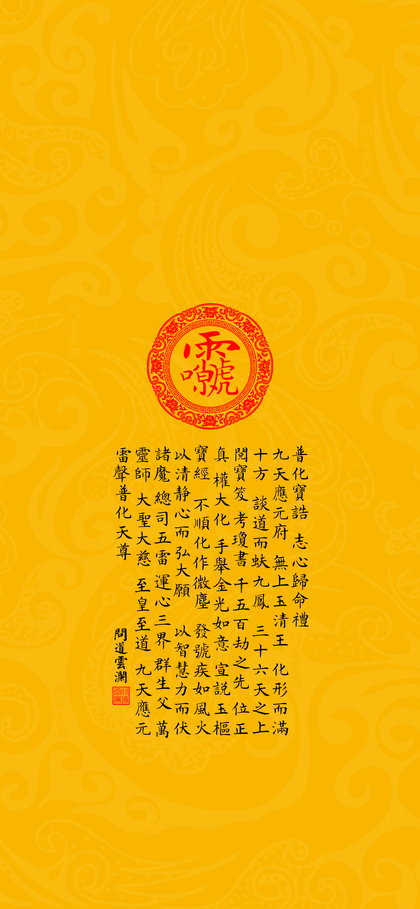 普化寶誥 志心歸命禮
九天應元府 無上玉清王 化形而滿
十方 談道而趺九鳳 三十六天之上
閱寶笈 考瓊書 千五百劫之先 位正
真 權大化 手舉金光如意 宣説玉樞
寶經 不順化作微塵 發號疾如風火
以清静心而弘大願 以智慧力而伏
諸魔 總司五雷 運心三界 群生父 萬
靈師 大聖大慈 至皇至道 九天應元
雷聲普化天尊
問道雲瀾